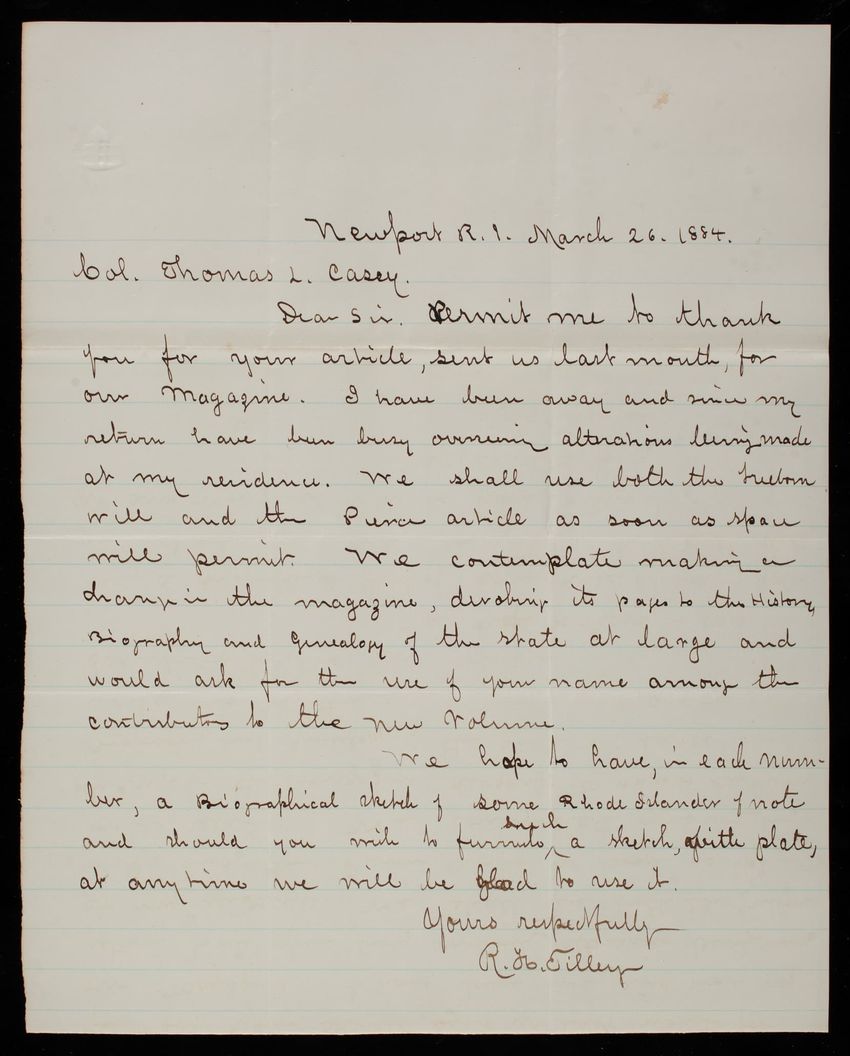 Newport R.I. March 26. 1884.
Col. Thomas L. Casey.
Dear Sir. Permit me to thank
you for your article, sent us last month, for
our Magazine. I have been away and since my
return have been busy overseeing alterations being made
at my residence. We shall use both the Freeborn
will and the Peirce article as soon as space
will permit. We contemplate making a
change in the magazine, devoting its pages to the History,
Biography and Genealogy of the state at large and
would ask for the use of your name among the
contributors to the new Volume.
We hope to have, in each num-
ber, a Biographical sketch of some Rhode Islander of note
and should you wish to furnish such a sketch, with plate,
at any time we will be glad to use it.
Yours respectfully
R. H. Tilley